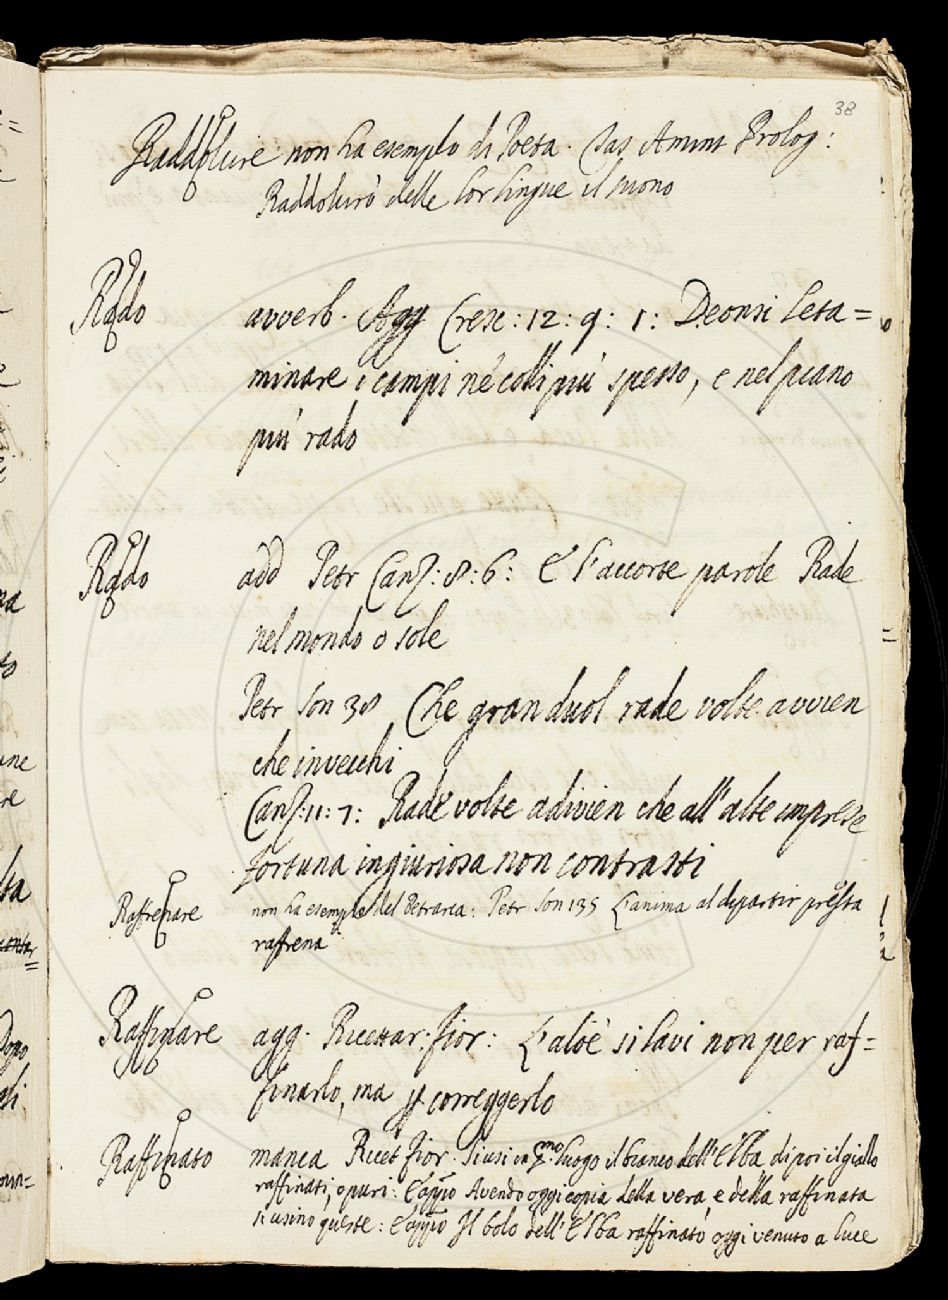 38
Raddolcire non ha esempio di Poeta. Tas Amint Prolog:
Raddolcirò delle lor lingue il suono
Rado avverb. Agg Cresc: 12: 9: 1: Deonsi leta=
minare i campi né colli più spesso, e nel piano
più rado
Rado add Petr Canz: 8: 6: E l'accorte parole Rade
nel mondo o sole
Petr Son 38 Che gran duol rade volte avvien
che invecchi
Canz: 11: 7: Rade volte adivien che all'alte imprese
fortuna ingiuriosa non contrasti
Raffrenare non ha esempio del Petrarca: Petr Son 135 L'anima al dipartir presta
rafrena
Raffinare agg. Ricettar: fior: L'aloè si lavi non per raf=
finarlo, ma p correggerlo
Raffinato manca Ricet fior. Si usi in pmo luogo il bianco dell'Elba, di poi il giallo
raffinati, o puri: L'appio Avendo oggi copia della vera, e della raffinata
si usino queste: L'appio Il bolo dell'Elba raffinato oggi venuto a luce